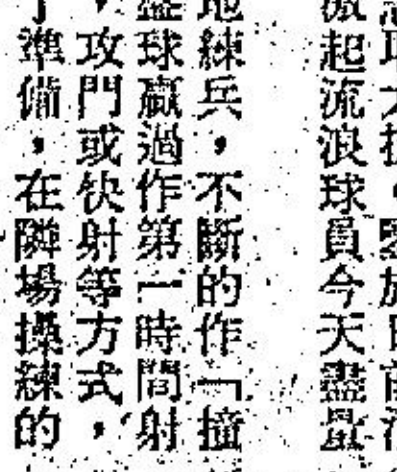 激起流浪球員今天盡量
地練兵，不斷的作「撞
盪球贏過作第一時間射
，攻門或快射等方式，
了準備，在隣場操練的